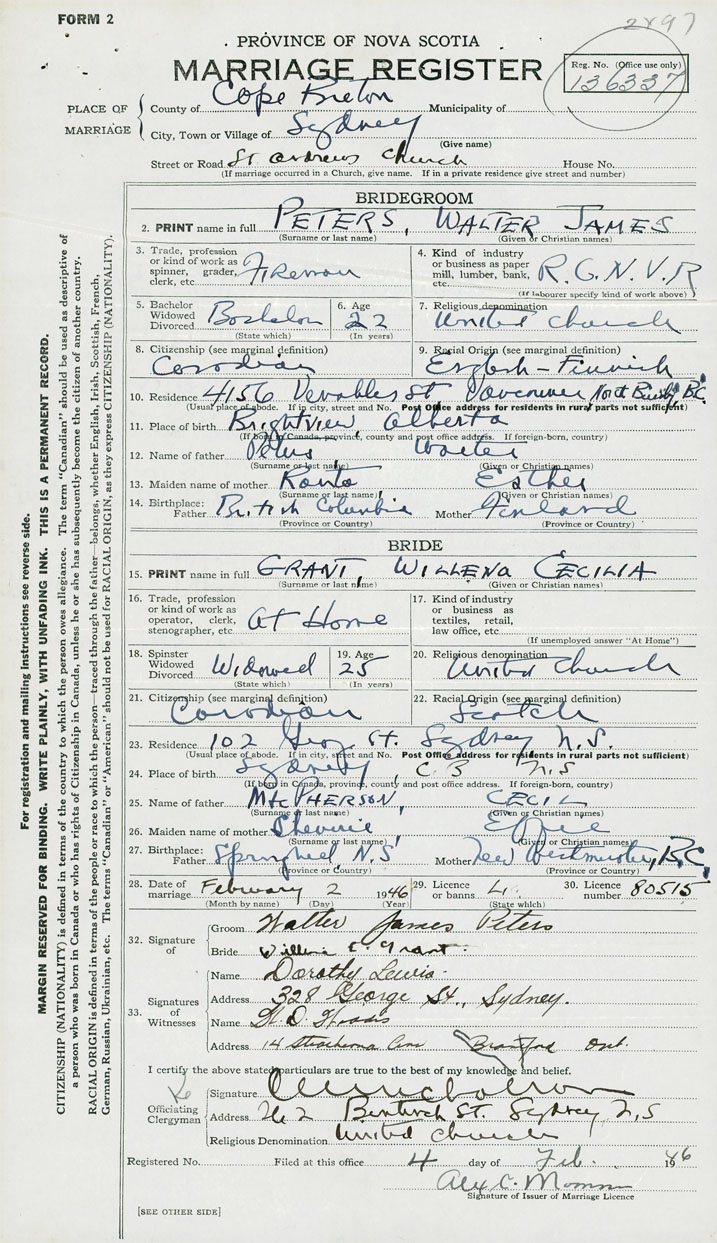 FORM 2
2897
PROVINCE OF NOVA SCOTIA
MARRIAGE REGISTER
Reg. No. (Office use only)
136337
PLACE OF MARRIAGE
County of Cape Breton Municipality of
City, Town or Village of Sydney
(Give name)
Street or Road St Andrews Church House No.
(If marriage occurred in a Church, give name. If in a private residence give street and number)
BRIDEGROOM
2. PRINT name in full PETERS, WALTER JAMES
(Surname or last name) (Given or Christian names)
3. Trade, profession or kind of work as spinner, grader, clerk, etc. Fireman
4. Kind of industry or business as paper mill, lumber, bank, etc. R.C.N.V.R
(If labourer specify kind of work above)
5. Bachelor Widowed Divorced Bachelor
(State which)
6. Age 22
(In years)
7. Religious denomination United Church
8. Citizenship (see marginal definition) Canadian
9. Racial Origin (see marginal definition) English - Finnish
10. Residence 4156 Venables St Vancouver North Burnaby B.C.
(Usual place of abode. If in city, street and No. Post Office address for residents in rural parts not sufficient)
11. Place of birth Brightview Alberta
(If born in Canada, province, county and post office address. If foreign-born, country)
12. Name of father Peters Walter
(Surname or last name) (Given or Christian names)
13. Maiden name of mother Ranta Esther
(Surname or last name) (Given or Christian names)
14. Birthplace: Father British Columbia Mother Finland
(Province or Country) (Province or Country)
BRIDE
15. PRINT name in full GRANT, WILLENA CECILIA
(Surname or last name) (Given or Christian names)
16. Trade, profession or kind of work as operator, clerk, stenographer, etc. At Home
17. Kind of industry or business as textiles, retail, law office, etc.
(If unemployed answer "At Home")
18. Spinster Widowed Divorced Widowed
(State which)
19. Age 25
(In years)
20. Religious denomination United Church
21. Citizenship (see marginal definition) Canadian
22. Racial Origin (see marginal definition) Scotch
23. Residence 102 St. Sydney N.S.
(Usual place of abode. If in city, street and No. Post Office address for residents in rural parts not sufficient)
24. Place of birth Sydney, C B N.S
(If born in Canada, province, county and post office address. If foreign-born, country)
25. Name of father MacPHERSON, CECIL
(Surname or last name) (Given or Christian names)
26. Maiden name of mother Cheverie, Effie
(Surname or last name) (Given or Christian names)
27. Birthplace: Father Springhill N.S Mother New Westminster, B.C.
(Province or Country) (Province or Country)
28. Date of marriage February 2 1946
(Month by name) (Day) (Year)
29. Licence or banns L.
(State which)
30. Licence number 80515
32. Signature of
Groom Walter James Peters
Bride Willena C. Grant
33. Signatures of Witnesses
Name Dorothy Lewis
Address 328 George St., Sydney.
Name
Address 14 Strathcona Ave Brantford Ont.
I certify the above stated particulars are to the best of my knowledge and belief.
Officiating Clergyman
Signature
Address 262 Bentinck St. Sydney N.S
Religious Denomination United Church
Registered No. Filed at this office 4 day of Feb. 1946
Signature of Issuer of Marriage Licence
[SEE OTHER SIDE]
For registration and mailing instructions see reverse side.
MARGIN RESERVED FOR BINDING. WRITE PLAINLY, WITH UNFADING INK. THIS IS A PERMANENT RECORD.
CITIZENSHIP (NATIONALITY) is defined in terms of the country to which the person owes allegiance. The term "Canadian" should be used as descriptive of
a person who was born in Canada or who has rights of Citizenship in Canada, unless he or she has subsequently become the citizen of another country.
RACIAL ORIGIN is defined in terms of the people or race to which the person—traced through the father—belongs, whether English, Irish, Scottish, French,
German, Russian, Ukrainian, etc. The terms "Canadian" or "American" should not be used for RACIAL ORIGIN, as they express CITIZENSHIP (NATIONALITY).